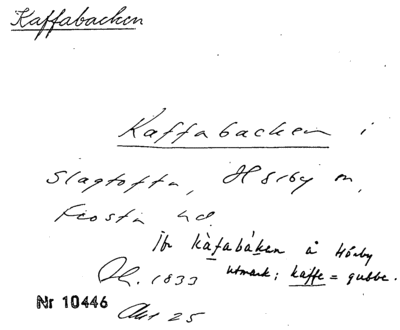 Kaffabacken
Kaffabacken i
Slagtofta, Hörby sn,
Frosta hd.
Jfr kàfabáken å Hörby
utmark; kaffe = gubbe.
1833
Nr 10446 Akt 25